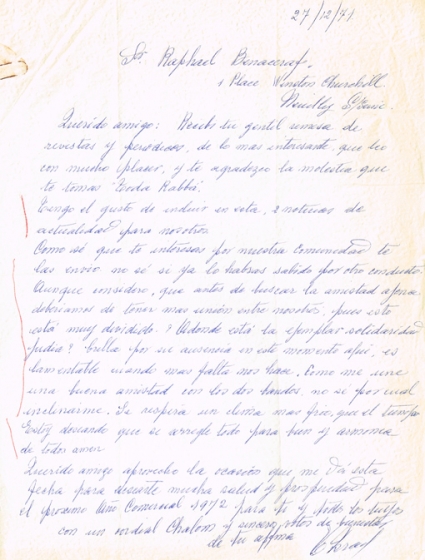 27/12/71
Sr Raphael Benacerraf.
1 Place Winston Churchill
Neuilly S/Seine.
Querido amigo: Recibi tu gentil remesa de
revistas y periodicos, de lo mas interesante, que leo
con mucho placer, y te agradezco la molestia que
te tomas. Toda Rabba.
Tengo el gusto de incluir en esta, 2 noticias de
actualidad para nosotros.
Como sé que te interesas por nuestra comunidad te
las envio no sé si ya lo habras sabido por otro conducto.
Aunque considero, que antes de buscar la amistad
deberiamos de tener mas union entre nosotros, pues esto
está muy dividido. ? Adonde está la ejemplar solidaridad
judia? brilla por su ausencia en este momento aqui, es
lamentable cuando mas falta nos hace. Como me une
una buena amistad con los dos bandos, no sé por cual
inclinarme. Se respira un clima mas frio, que el tiempo.
Estoy deseando que se arregle todo para bien y armonia
de todos amen.
Querido amigo aprovecho la ocasión que me dá esta
fecha para desearte mucha salud y prosperidad para
el proximo Año Comercial 1972 para ti y todos los tuyos
con un cordial Chalom y sinceros votos de
de tu affma